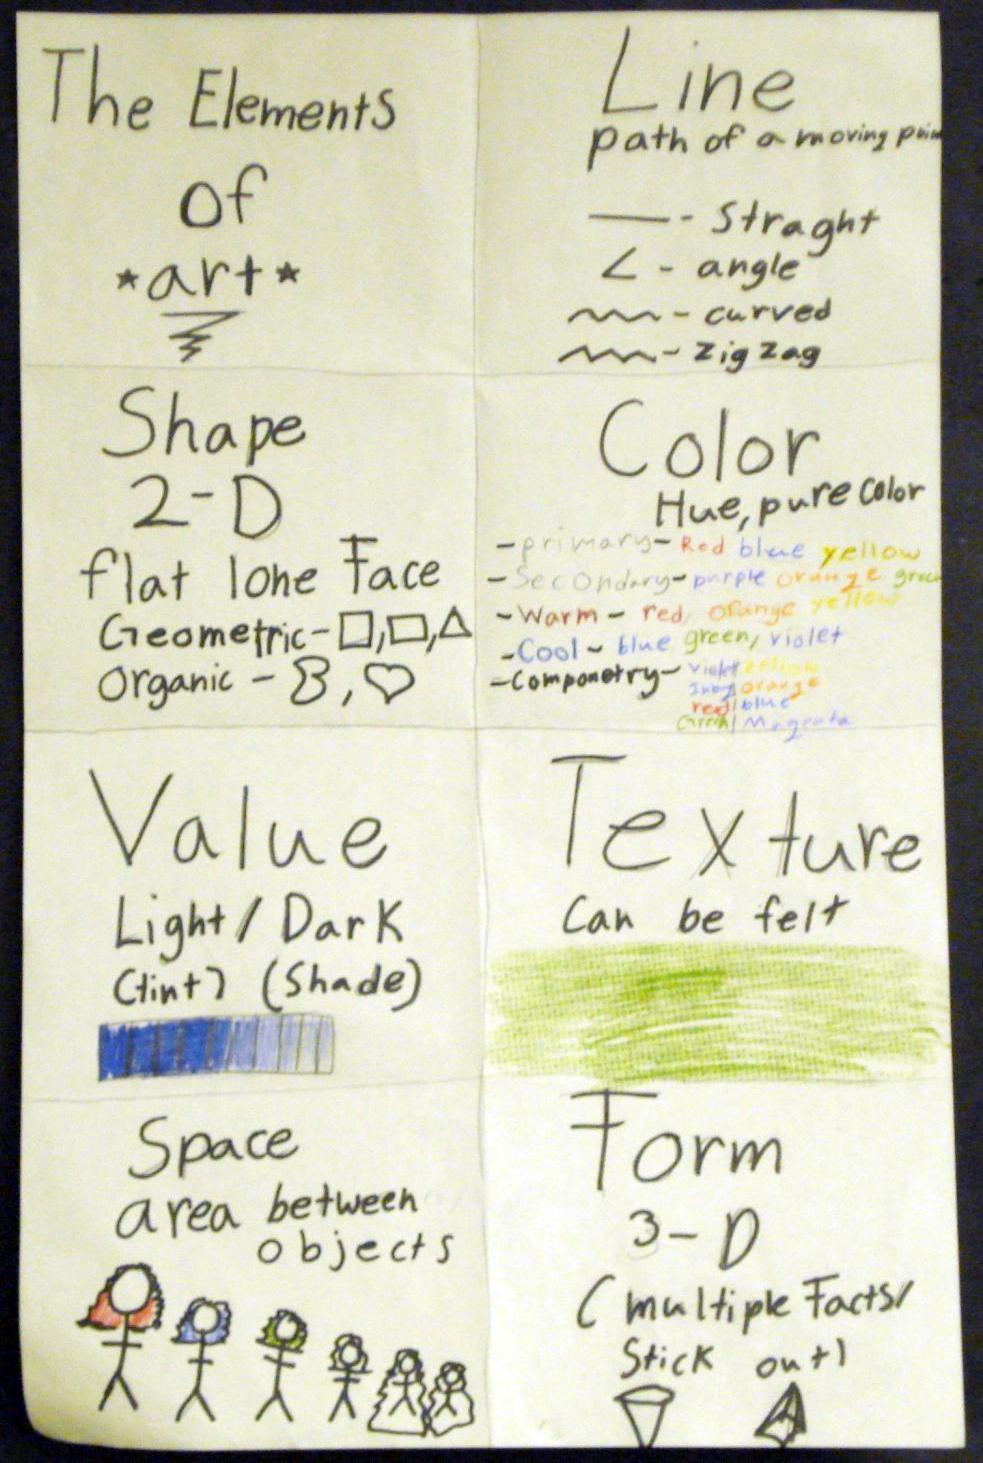 The Elements
of
*art*
Line
path of a moving poin
- Straght
- angle
- curved
- Zig Zag
Shape
2-D
flat lone Face
Geometric-
Organic -
Color
Hue, pure color
-primary- Red blue yellow
-Secondary- purple orange green
-Warm - red, orange yellow
-Cool - blue green, violet
-Componetry- violet yellow
orange
red/blue
Green/Magenta
Value
Light/ Dark
(tint) (Shade)
Texture
Can be felt
Space
area between
objects
Form
3-D
(multiple Facts/
Stick out)